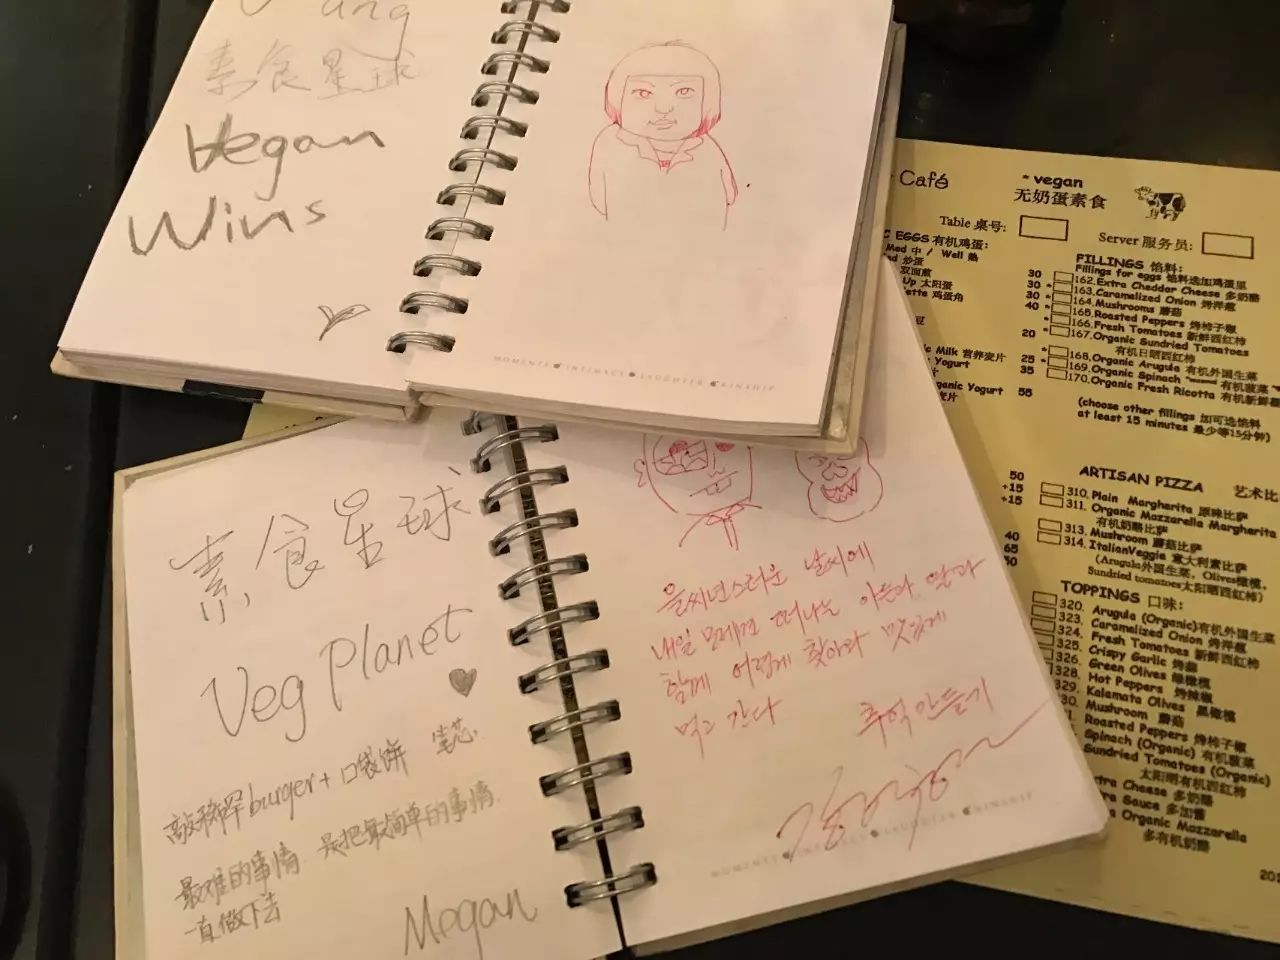 素食星球
Vegan
Wins
MOMENTS INTIMACY LAUGHTER KINSHIP
素食星球
Veg Planet
burger+口袋饼 笔芯.
最难的事情. 是把最简单的事情.
一直做下去
Megan
을씨년스러운 날씨에
내일 떠나는 아들과 딸과
함께 어렵게 찾아와 맛있게
먹고 간다
추억만들기
MOMENTS INTIMACY LAUGHTER KINSHIP
Café
~ vegan
无奶蛋素食
Table 桌号:
Server 服务员:
EGGS 有机鸡蛋:
Med 中 / Well 熟
炒蛋
双面煎
Up 太阳蛋
鸡蛋角
30
30
30
40
20
Milk 营养麦片
25
Yogurt
35
Yogurt
55
麦片
FILLINGS 馅料:
Fillings for eggs 馅料选加鸡蛋里
162.Extra Cheddar Cheese 多奶酪
163.Caramelized Onion 烤洋葱
164.Mushrooms 蘑菇
165.Roasted Peppers 烤柿子椒
166.Fresh Tomatoes 新鲜西红柿
167.Organic Sundried Tomatoes
有机日晒西红柿
168.Organic Arugula 有机外国生菜
169.Organic Spinach 有机菠菜
170.Organic Fresh Ricotta 有机新鲜
(choose other fillings 加可选馅料
at least 15 minutes 最少等15分钟)
ARTISAN PIZZA 艺术比
50
+15
+15
40
65
50
310. Plain Margherita 原味比萨
311. Organic Mozzarella Margherita
有机奶酪比萨
313. Mushroom 蘑菇比萨
314. ItalianVeggie 意大利素比萨
(Arugula外国生菜, Olives橄榄,
Sundried tomatoes太阳晒西红柿)
TOPPINGS 口味:
320. Arugula (Organic)有机外国生菜
323. Caramelized Onion 烤洋葱
324. Fresh Tomatoes 新鲜西红柿
325. Crispy Garlic 烤蒜
326. Green Olives 绿橄榄
328. Hot Peppers 烤辣椒
329. Kalamata Olives 黑橄榄
Mushroom 蘑菇
Roasted Peppers 烤柿子椒
Spinach (Organic) 有机菠菜
Sundried Tomatoes (Organic)
太阳晒有机西红柿
Cheese 多奶酪
Sauce 多加酱
Organic Mozzarella
多有机奶酪